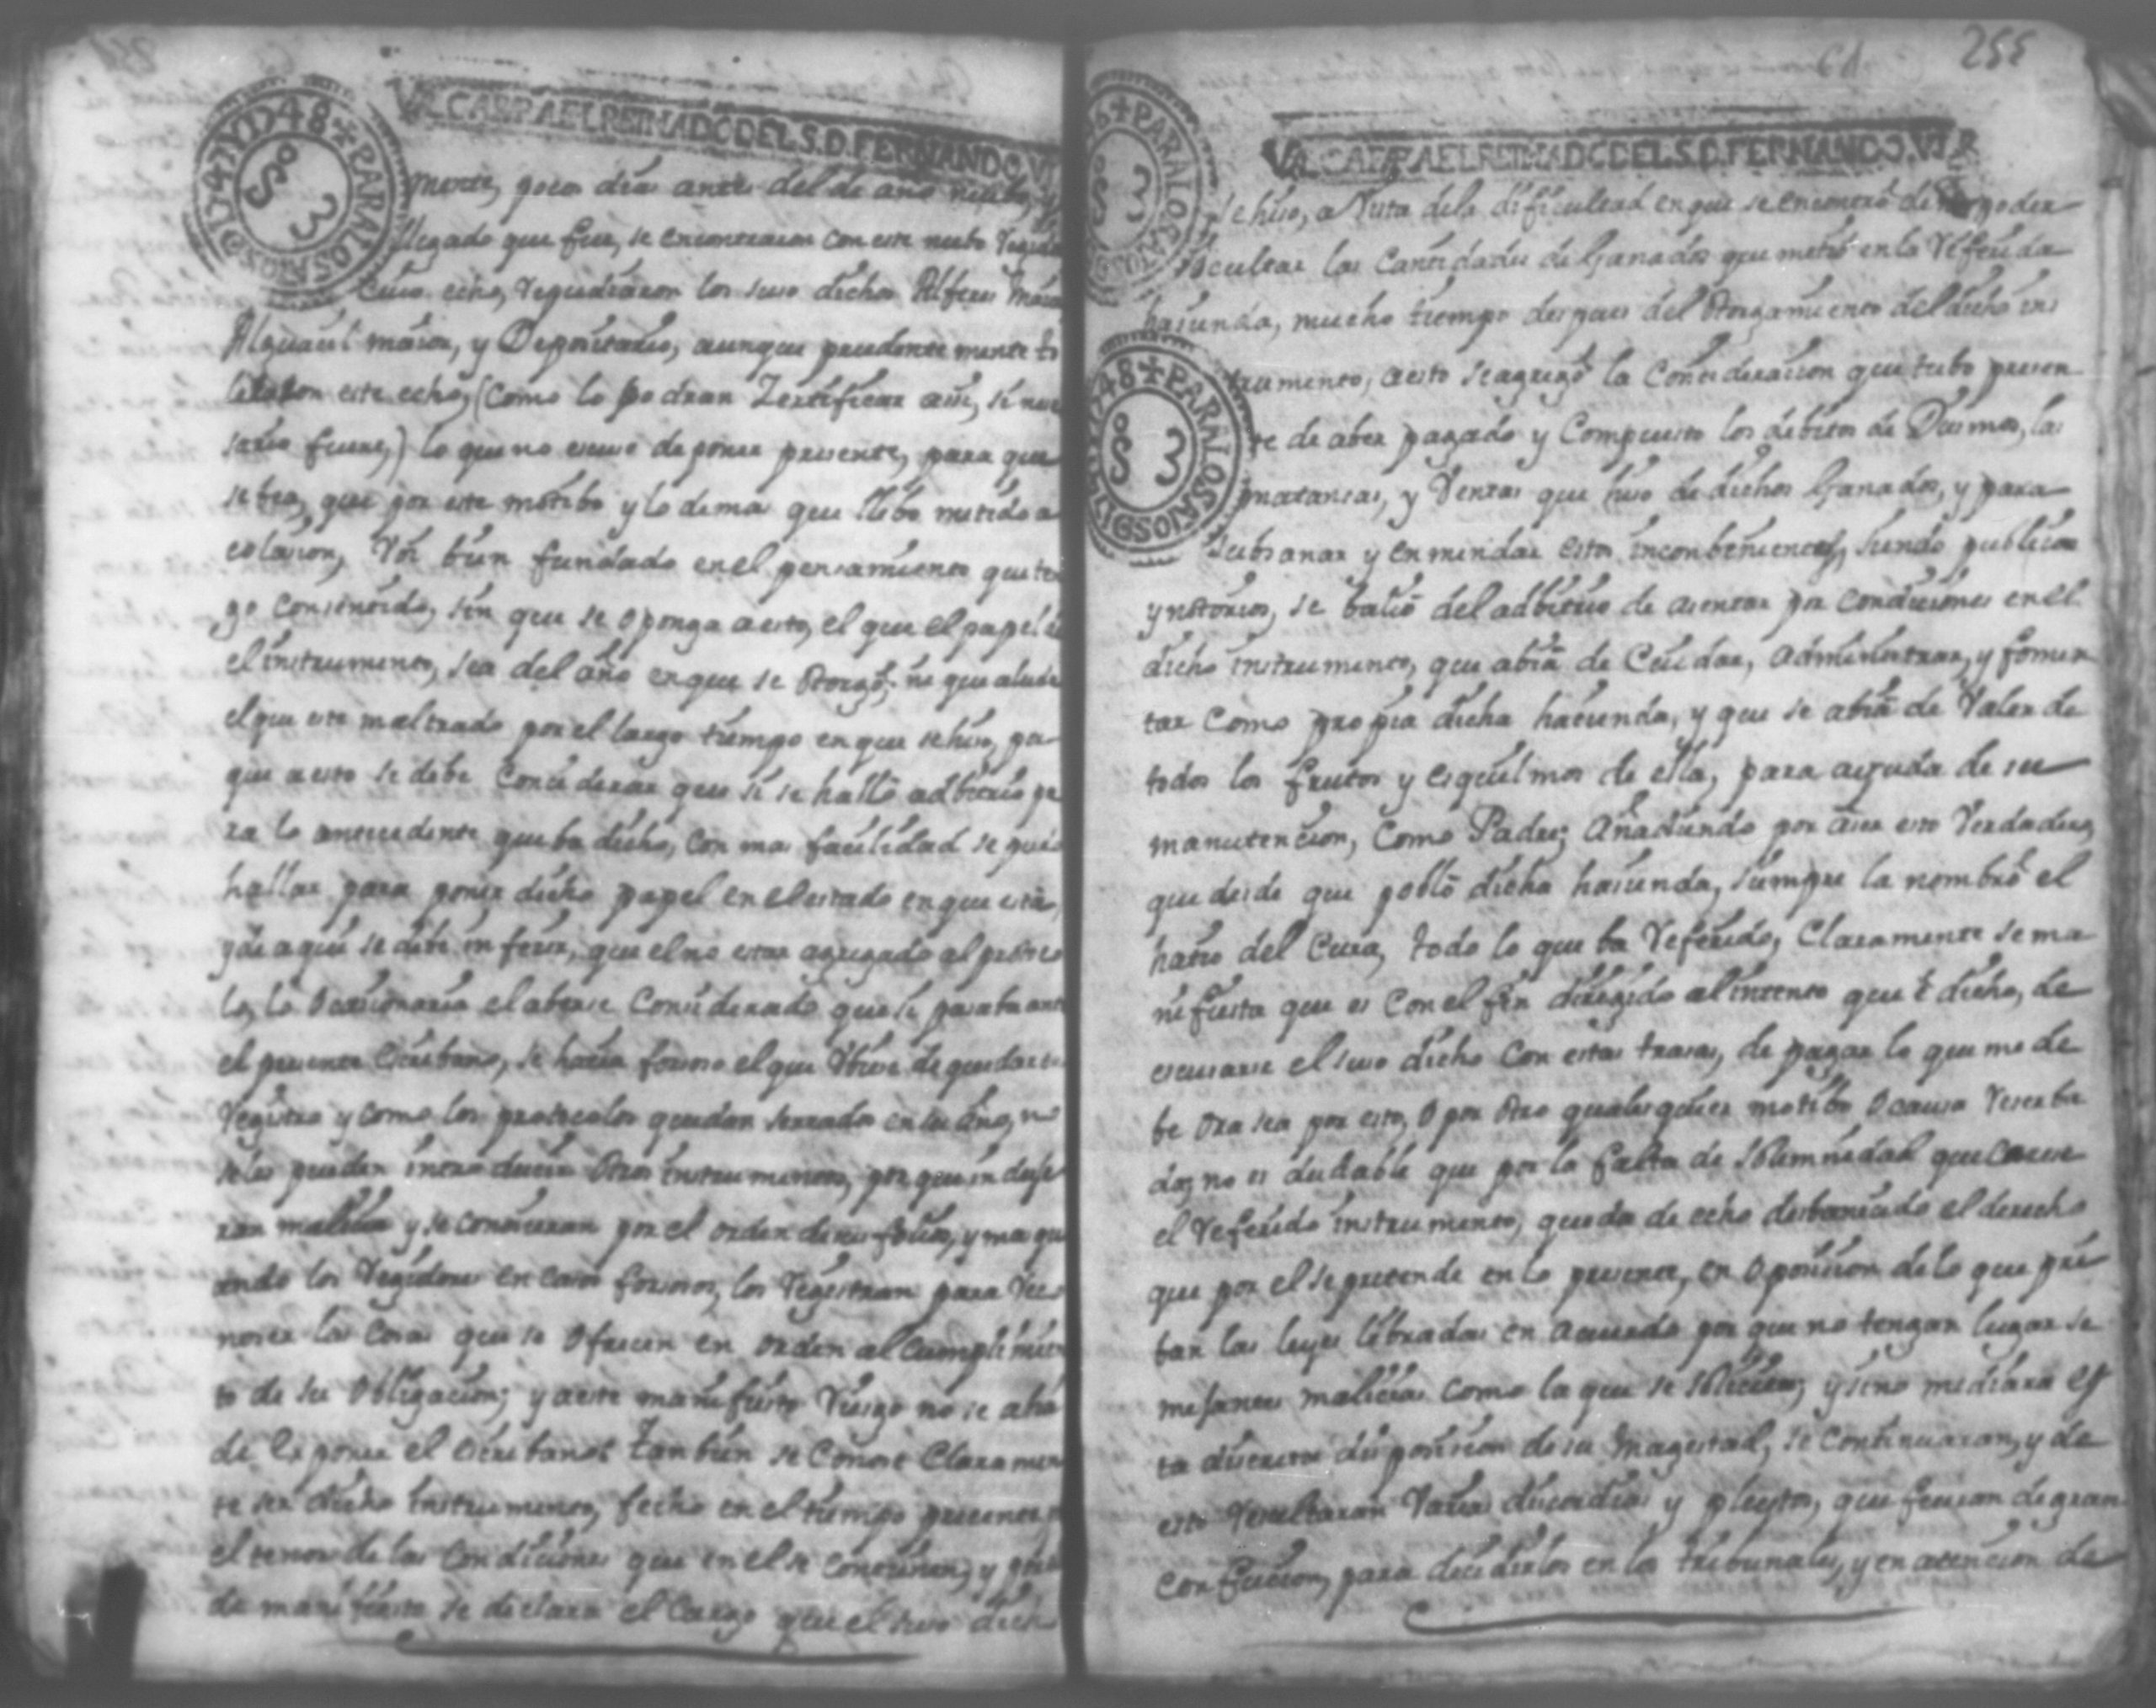 VALGA PARA EL REINADO DEL S.D. FERNANDO VI
1747 Y 1748 + PARA LOS AÑOS D
S 3
muerte, pocos dias antes del de año nuebo, y
llegado que fue, se encontraron con este nuebo Regidor
Cuio echo, repudiaron los suso dichos Alferes Maior
Alguacil maior, y Depocitario, aunque prudente mente to
leraron este echo, (como lo podran Zertificar assi, si nese
sario fuere,) lo que no escuso de poner presente, para que
se bea, que por este motibo y lo demas que llebo metido a
colasion, Voi bien fundado en el pensamiento que ten
go consentido, sin que se oponga a esto, el que el papel de
el instrumento, sea del año en que se otorgó; ni que alude
el que este maltrado por el largo tiempo en que se hiso, por
que a esto se debe Considerar que si se halló adbitrio pa
ra lo antecedente que ba dicho, con mas facilidad se pudo
hallar para poner dicho papel en el estado en que está,
y de aqui se debe inferir, que el no estar agregado al protoco
lo, lo ocasionaria el aberse Considerado que si pasaba ante
el presente Escribano, se hacia forsoso el que Ubiese de quedar en
Registro y como los protocolos quedan serrados en su año, no
se les pueden introducir otros instrumentos, por que in duje
ran malicia y se conocieran por el orden de sus folios, y mas qu
ando los Regidores en casos forsosos, los Registran para Reco
noser las Cosas que se ofrecen en orden al Cumplimien
to de su obligacion; y a este manifiesto Riesgo no se abia
de exponer el Escribano: tambien se Conose Claramen
te ser dicho instrumento, fecho en el tiempo presente,
el tenor de las Condiciones que en el se contienen, y
de manifiesto se declara el Cargo que el suso dicho
61 255
VALGA PARA EL REINADO DEL S.D. FERNANDO VI
+ PARA LOS
S 3
se hiso, a Vista dela dificultad en que se encontró de no poder
ocultar las Cantidades de Ganados que metió en la Referida
hasienda, mucho tiempo despues del otorgamiento del dicho ins
trumento, a esto se agregó la Concideracion que tubo presen
1748 + PARA LOS AÑOS D
S 3
te de aber pagado y Compuesto los debitos de Diesmos, las
matansas, y Ventas que hiso de dichos Ganados, y para
subsanar y enmendar estos inconbenientes, siendo publicos
y notorios, se balió del adbitrio de asentar por condiciones en el
dicho instrumento, que abia de Cuidar, administrar, y fomen
tar Como propia dicha hacienda, y que se abia de Valer de
todos los frutos y esquilmos de ella, para ayuda de su
manutencion, Como Padre; Añadiendo por aser esto Verdadero,
que desde que pobló dicha hasienda, siempre la nombró el
hatto del Cura, todo lo que ba Referido, Claramente se ma
nifiesta que es con el fin dirigido al intento que é dicho, de
escusarse el suso dicho con estas trasas, de pagar lo que me de
be ora sea por esto, o por otro qualesquier motibo o causa reserba
da, no es dudable que por la falta de solemnidad que Carese
el Referido instrumento, queda de echo desbanecido el derecho
que por el se pretende en lo presente, en oposicion de lo que pre
ban las leyes libradas en acuerdo por que no tengan lugar se
mejantes malicias como la que se solicita; y si no mediara es
ta discreta disposicion de su Magestad, se continuaran, y de
esto Resultaran Varias discordias y pleytos, que fueran de gran
confucion, para decidirlos en los tribunales, y en atencion de